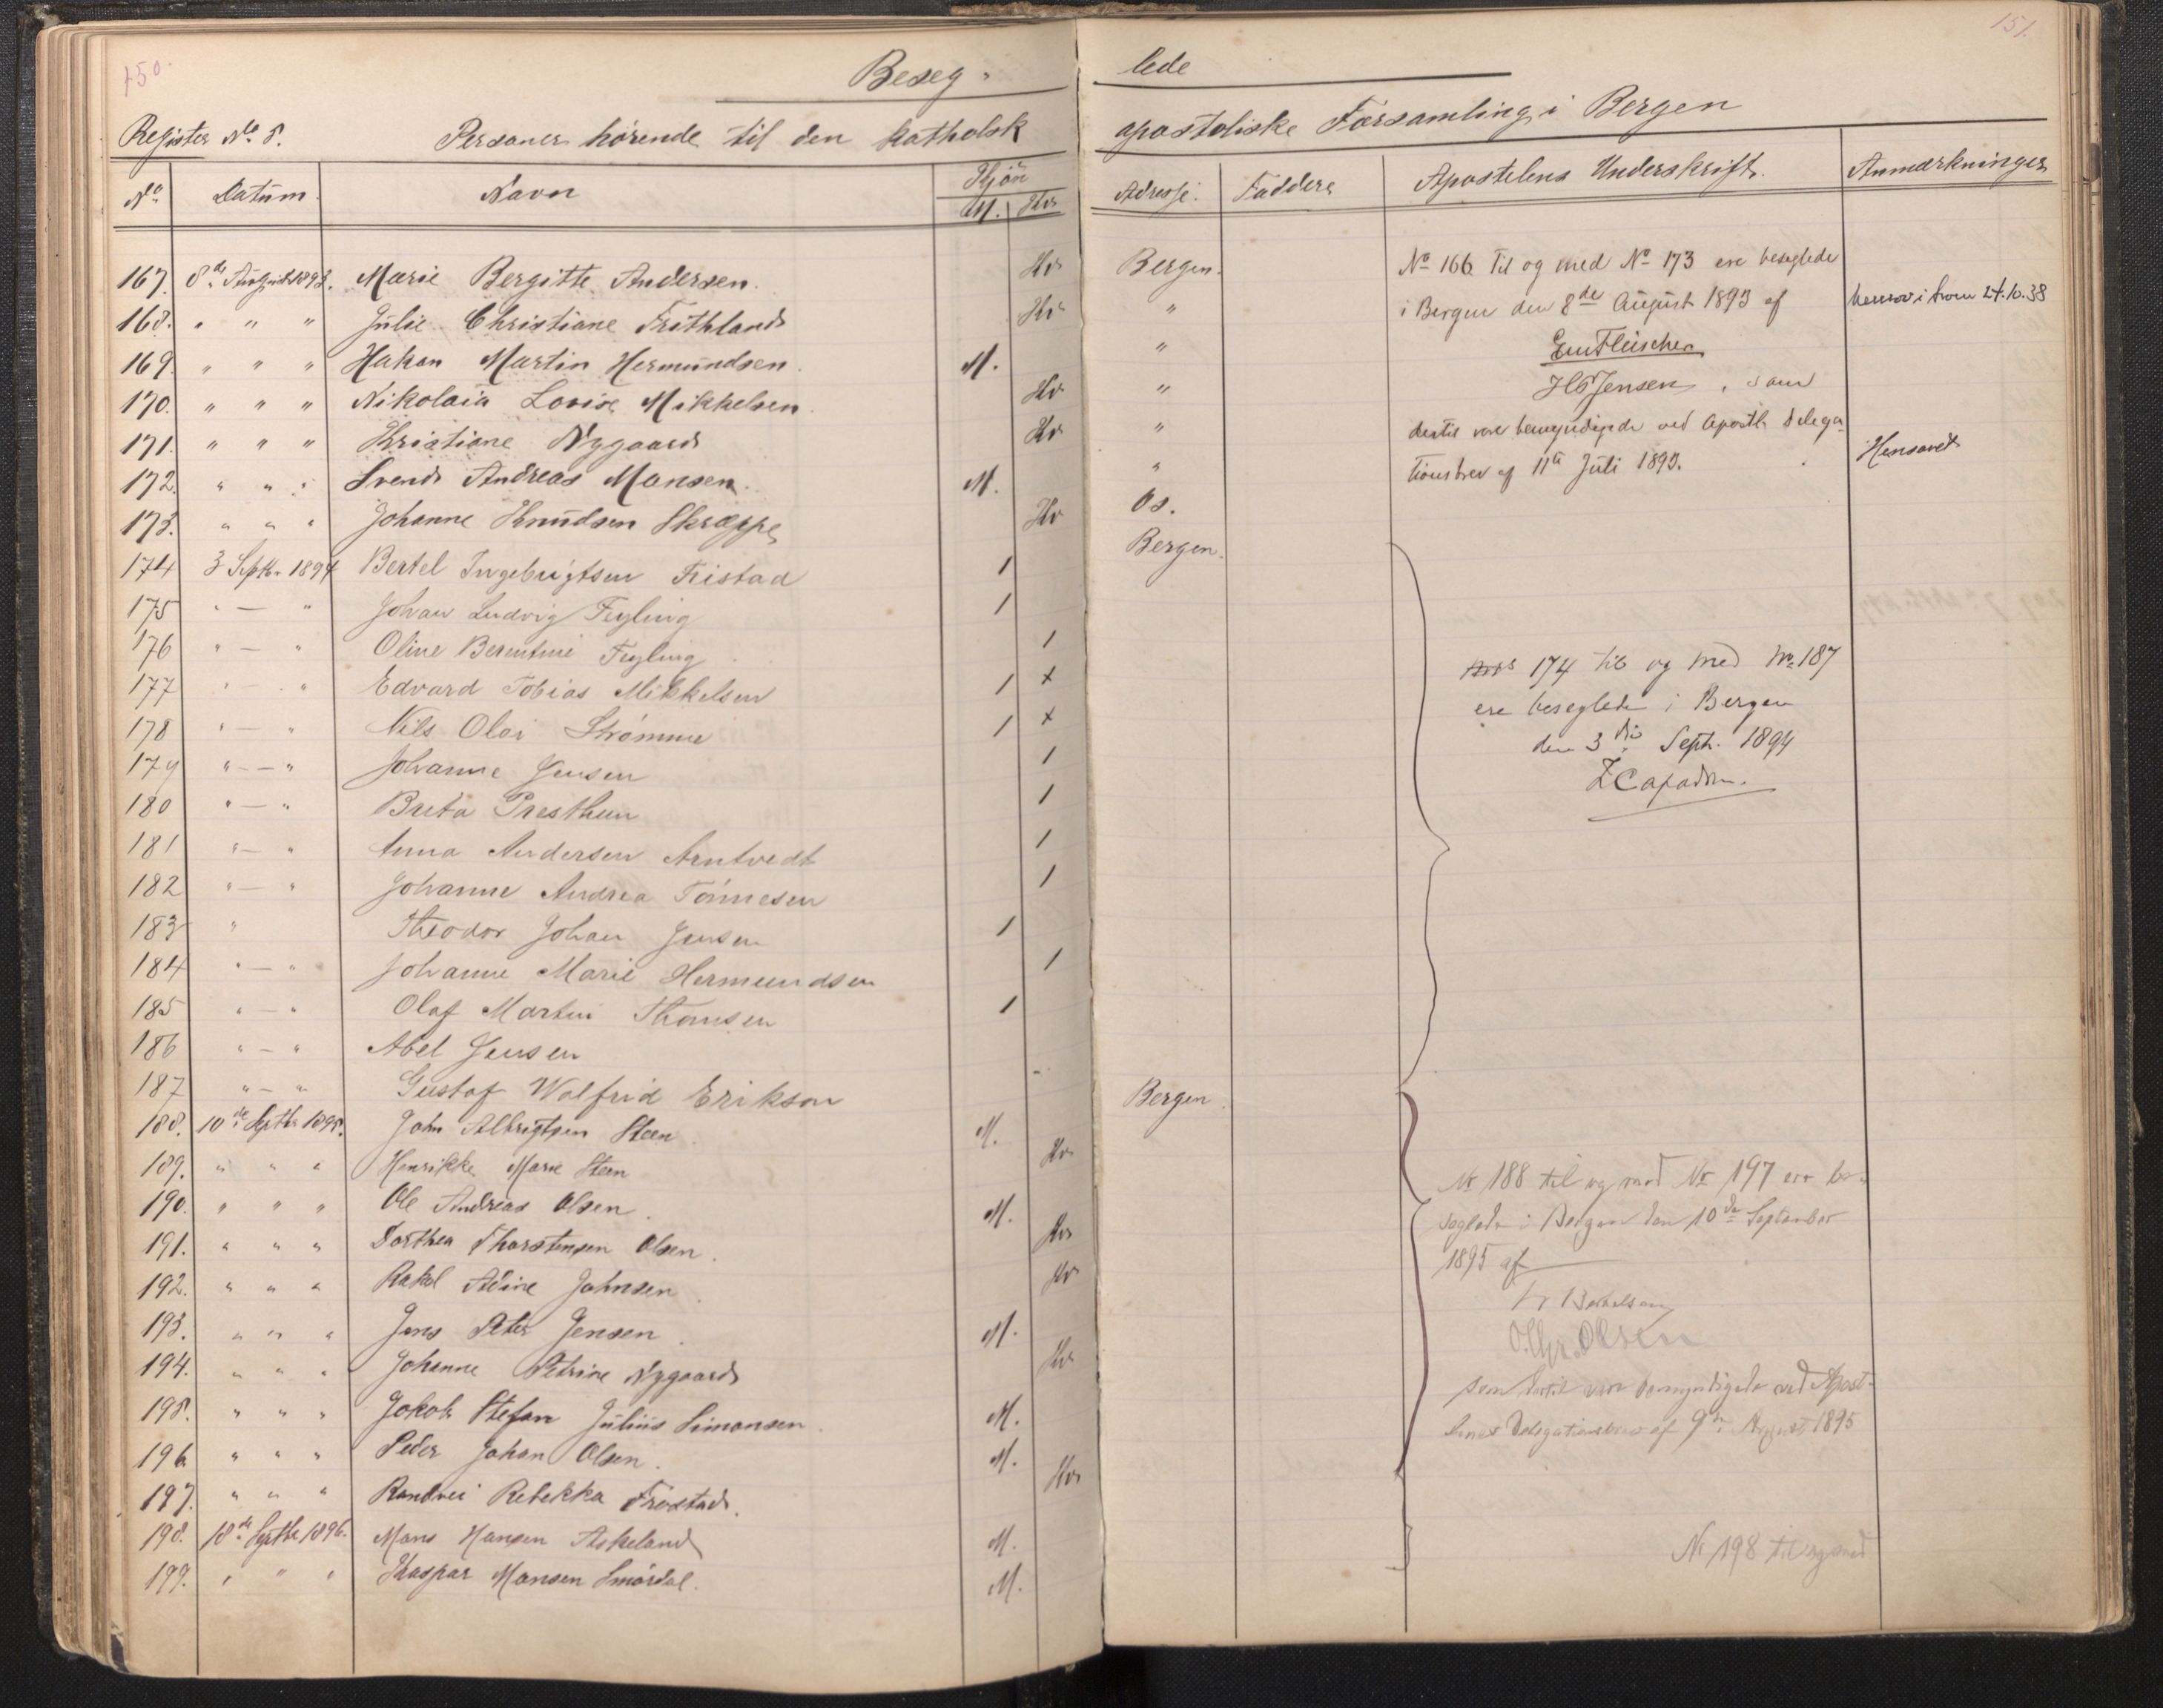 150.
151.
Beseg- lede
Register No 5. Personer hörende til den katholsk apostoliske Forsamling i Bergen
No Datum Navn Kjön M. Kv Adresse. Faddere Apostelens Underskrift. Anmærkninger
167. 8de August 1893. Marie Bergitte Andersen. Kv Bergen. No 166 Til og med No 173 ere beseglede
168. " " " Julie Christiane Frithland Kv " i Bergen den 8de August 1893 af 24.10.38
169. " " " Hakon Martin Hermundsen. M. " Em Fleischer
170. " " " Nikolaia Lovise Mikkelsen. Kv " HCJensen, som
171. " " " Kristiane Nygaard Kv " dertil vare bemyndigede ved Apostl. Delega-
172. " " " Svend Andreas Mansen. M. " tionsbrev af 11te Juli 1893. Hensovet
173. " " " Johanne Knudsen Skræppe Kv Os.
174 3 Septb. 1894 Bertel Ingebrigtsen Fristad 1 Bergen.
175 " — " Johan Ludvig Feyling 1
176 " — " Oline Berentine Feyling 1
177 " — " Edvard Tobias Mikkelsen 1 x 174 til og med No 187
178 " — " Nils Olai Strømme 1 x ere beseglede i Bergen
179 " — " Johanne Jensen 1 den 3die Septr. 1894
180 " — " Brita Presthun 1 Capadose.
181 " — " Anna Andersen Arntvedt 1
182 " — " Johanne Andrea Tönnesen 1
183 " Theodor Johan Jensen 1
184 " — " Johanne Marie Hermundsen 1
185 " — " Olaf Martin Thomsen 1
186 " — " Abel Jensen
187 " — " Gustaf Wolfrid Erikson
188. 10de Septbr 1895. John Albrigtsen Steen. M. Bergen.
189. " " " Henrikke Marie Steen Kv No 188 til og med No 197 ere be-
190. " " " Ole Andreas Olsen. M. seglede i Bergen den 10de September
191. " " " Dorthea Thorstensen Olsen. Kv 1895 af
192. " " " Rakel Adine Johnsen. Kv
193. " " " Jens Peter Jensen. M. O.Chr. Olsen
194. " " " Johanne Petrine Nygaard Kv som dertil vare bemyndigede ved Apost-
195. " " " Jakob Stefan Julius Simonsen. M. lens Delegationsbrev af 9de August 1895
196. " " " Peder Johan Olsen. M.
197. " " " Randvei Rebekka Frostad. Kv
198. 18de Septbr 1896. Mons Hansen Askeland M. No 198 til og med
199. " " " Kaspar Monsen Smördal. M.